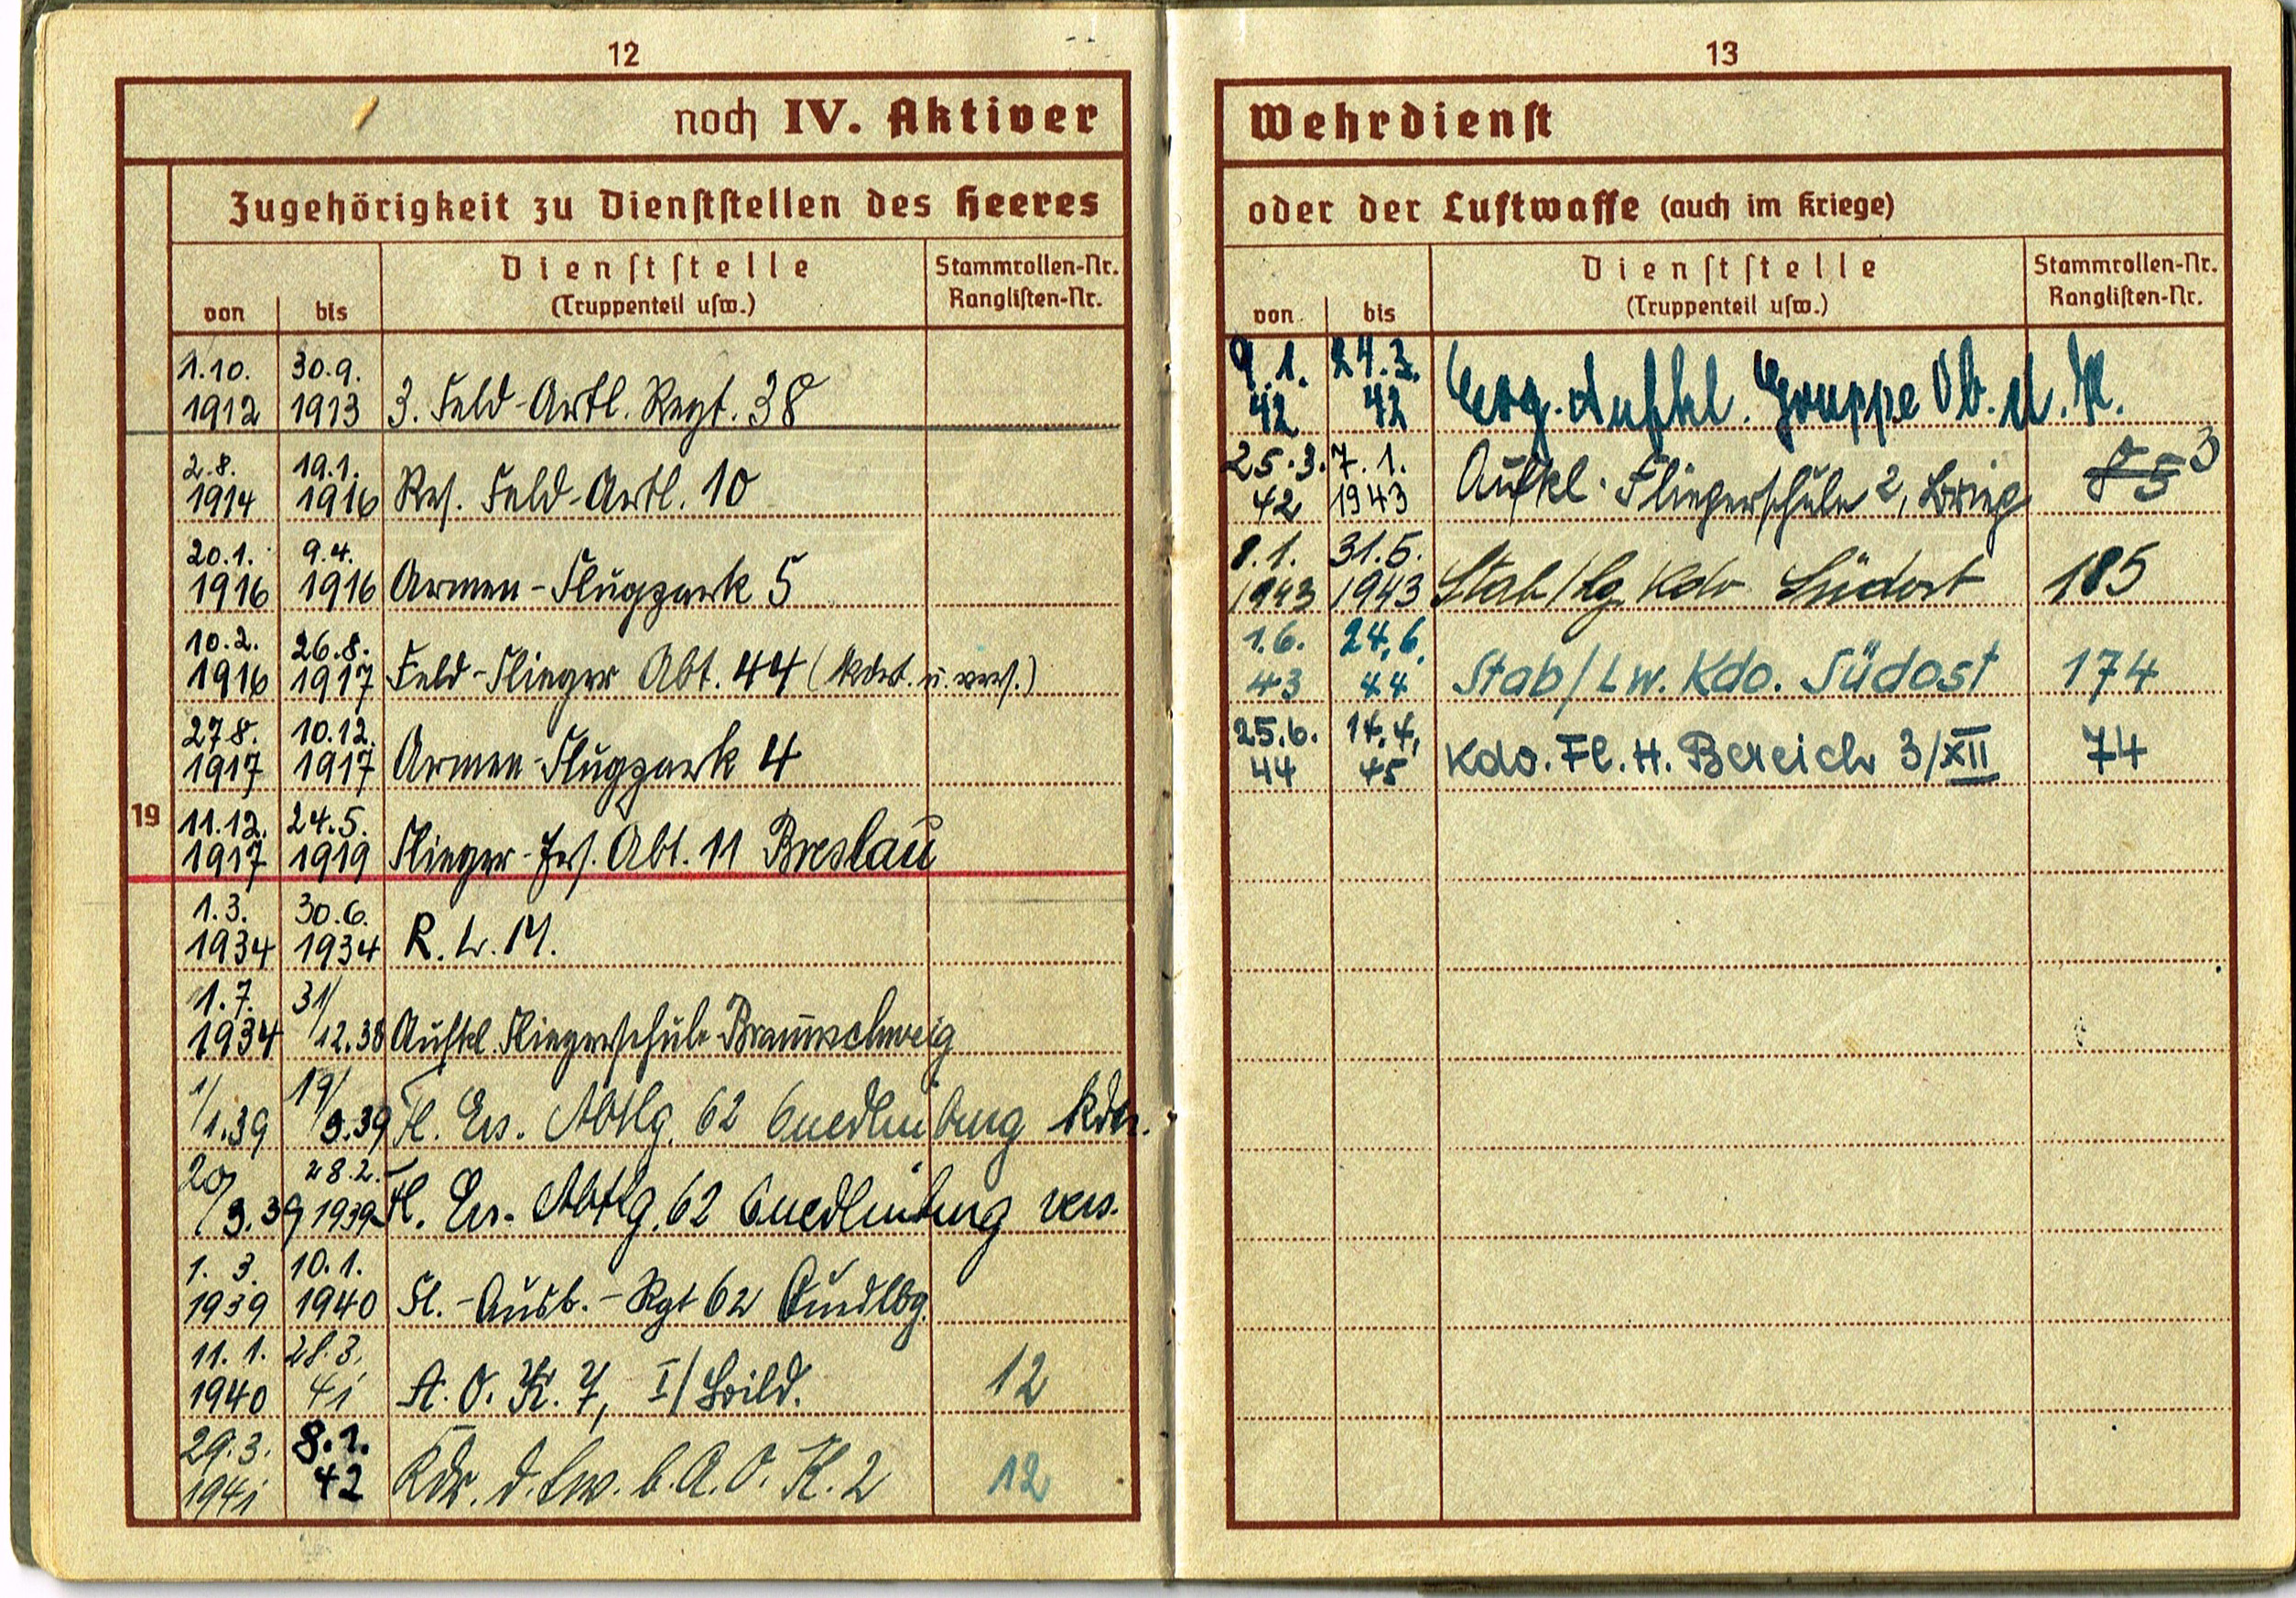 12
noch IV. Aktiver
Zugehörigkeit zu Dienststellen des Heeres
von
bis
Dienststelle
(Truppenteil usw.)
Stammrollen-Nr.
Ranglisten-Nr.
1.10. 30.9.
1912 1913 3. Feld-Artl. Regt. 38
2.8. 19.1.
1914 1916 Res. Feld-Artl. 10
20.1. 9.4.
1916 1916 Armee-Flugpark 5
10.2. 26.8.
1916 1917 Feld-Flieger Abt. 44 (kdrt. u. vers.)
27.8. 10.12.
1917 1917 Armee-Flugpark 4
19 11.12. 24.5.
1917 1919 Flieger-Ers. Abt. 11 Breslau
1.3. 30.6.
1934 1934 R. L. M.
1.7. 31/
1934 /12.38 Aufkl. Fliegerschule Braunschweig
1/ 19/
/1.39 /3.39 Fl. Ers. Abtlg. 62 Quedlinburg
20/ 28.2.
/3.39 1939 Fl. Ers. Abtlg. 62 Quedlinburg vers.
1. 3. 10.1.
1939 1940 Fl.-Ausb.-Rgt 62 Quedlbg.
11. 1. 28.3.
1940 41 A. O. K. 7, I/Bild. 12
29.3. 8.1.
1941 42 Kdr. d. Lw. b. A. O. K. 2 12
13
Wehrdienst
oder der Luftwaffe (auch im Kriege)
von
bis
Dienststelle
(Truppenteil usw.)
Stammrollen-Nr.
Ranglisten-Nr.
9.1. 24.3.
42 42 Erg. Aufkl. Gruppe Ob. d. L.
25.3. 7.1. 3
42 1943 Aufkl. Fliegerschule 2, Brieg
8.1. 31.5.
1943 1943 Stab/Lg. Kdo Südost 185
1.6. 24.6.
43 44 Stab/Lw. Kdo. Südost 174
25.6. 14.4.
44 45 Kdo. Fl. H. Bereich 3/XII 74